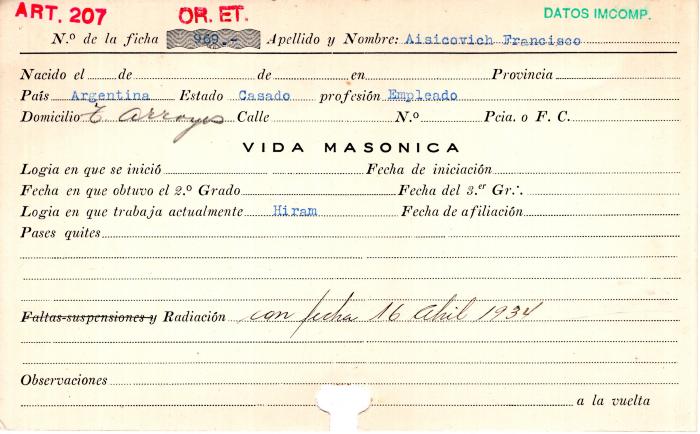 ART. 207 OR. ET. DATOS IMCOMP.
N.º de la ficha 969.- Apellido y Nombre: Aisicovich Francisco
Nacido el de de en Provincia
País Argentina Estado Casado profesión Empleado
Domicilio T. Arroyos Calle N.º Pcia. o F. C.
VIDA MASONICA
Logia en que se inició Fecha de iniciación
Fecha en que obtuvo el 2.º Grado Fecha del 3.er Gr∴
Logia en que trabaja actualmente Hiram Fecha de afiliación
Pases quites
Faltas-suspensiones y Radiación con fecha 16 Abril 1934
Observaciones
a la vuelta